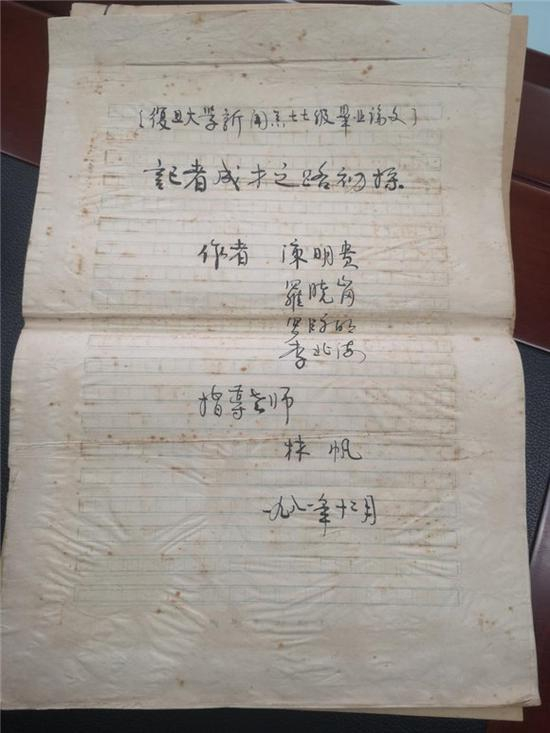 〔復旦大学新闻系七七级畢业論文〕
記者成才之路初探
作者 陳明贵
羅晓岗
李北海
指导老师
林帆
一九八一年十二月